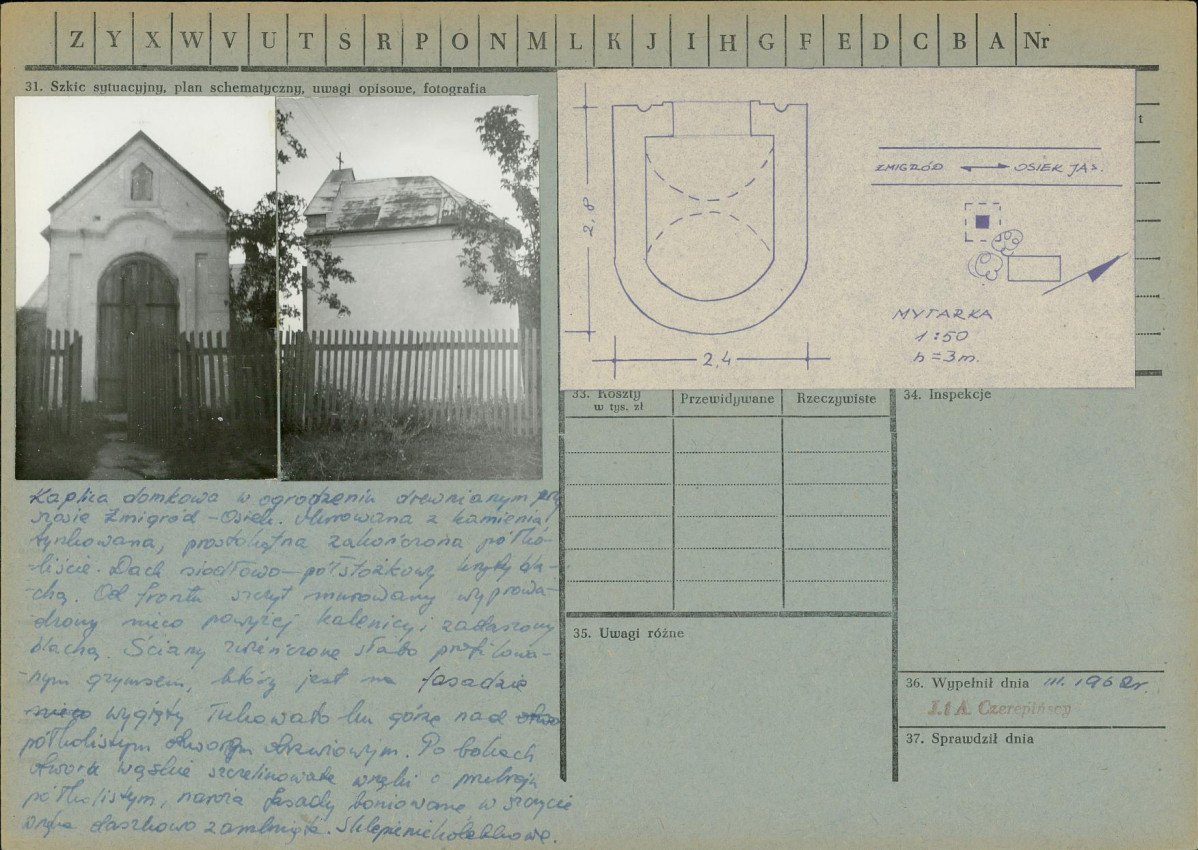 Z Y X W V U T S R P O N M L K J I H G F E D C B A Nr
31. Szkic sytuacyjny, plan schematyczny, uwagi opisowe, fotografia
t
2,8
2,4
ŻMIGRÓD OSIEK JAS.
MYTARKA
1:50
h = 3m.
Kaplica domkowa w ogrodzeniu drewnianym przy
szosie Żmigród - Osiek. Murowana z kamienia
tynkowana, prostokątna zakończona półko-
liście. Dach siodłowo-półstożkowy kryty bla-
chą. Od frontu szczyt murowany wyprowa-
dzony nieco powyżej kalenicy i zadaszony
blachą. Ściany zwieńczone słabo profilowa-
nym gzymsem, który jest na fasadzie
wygięty łukowato ku górze nad
półkolistym otworem drzwiowym. Po bokach
otworu wąskie szczelinowate wnęki o
półkolistym, naroża fasady boniowane w szczycie
wnęka daszkowo zamknięta. Sklepienie kolebkowe.
33. Koszty
w tys. zł
Przewidywane
Rzeczywiste
34. Inspekcje
35. Uwagi różne
36. Wypełnił dnia III. 1968r.
J. i A. Czerepińscy
37. Sprawdził dnia